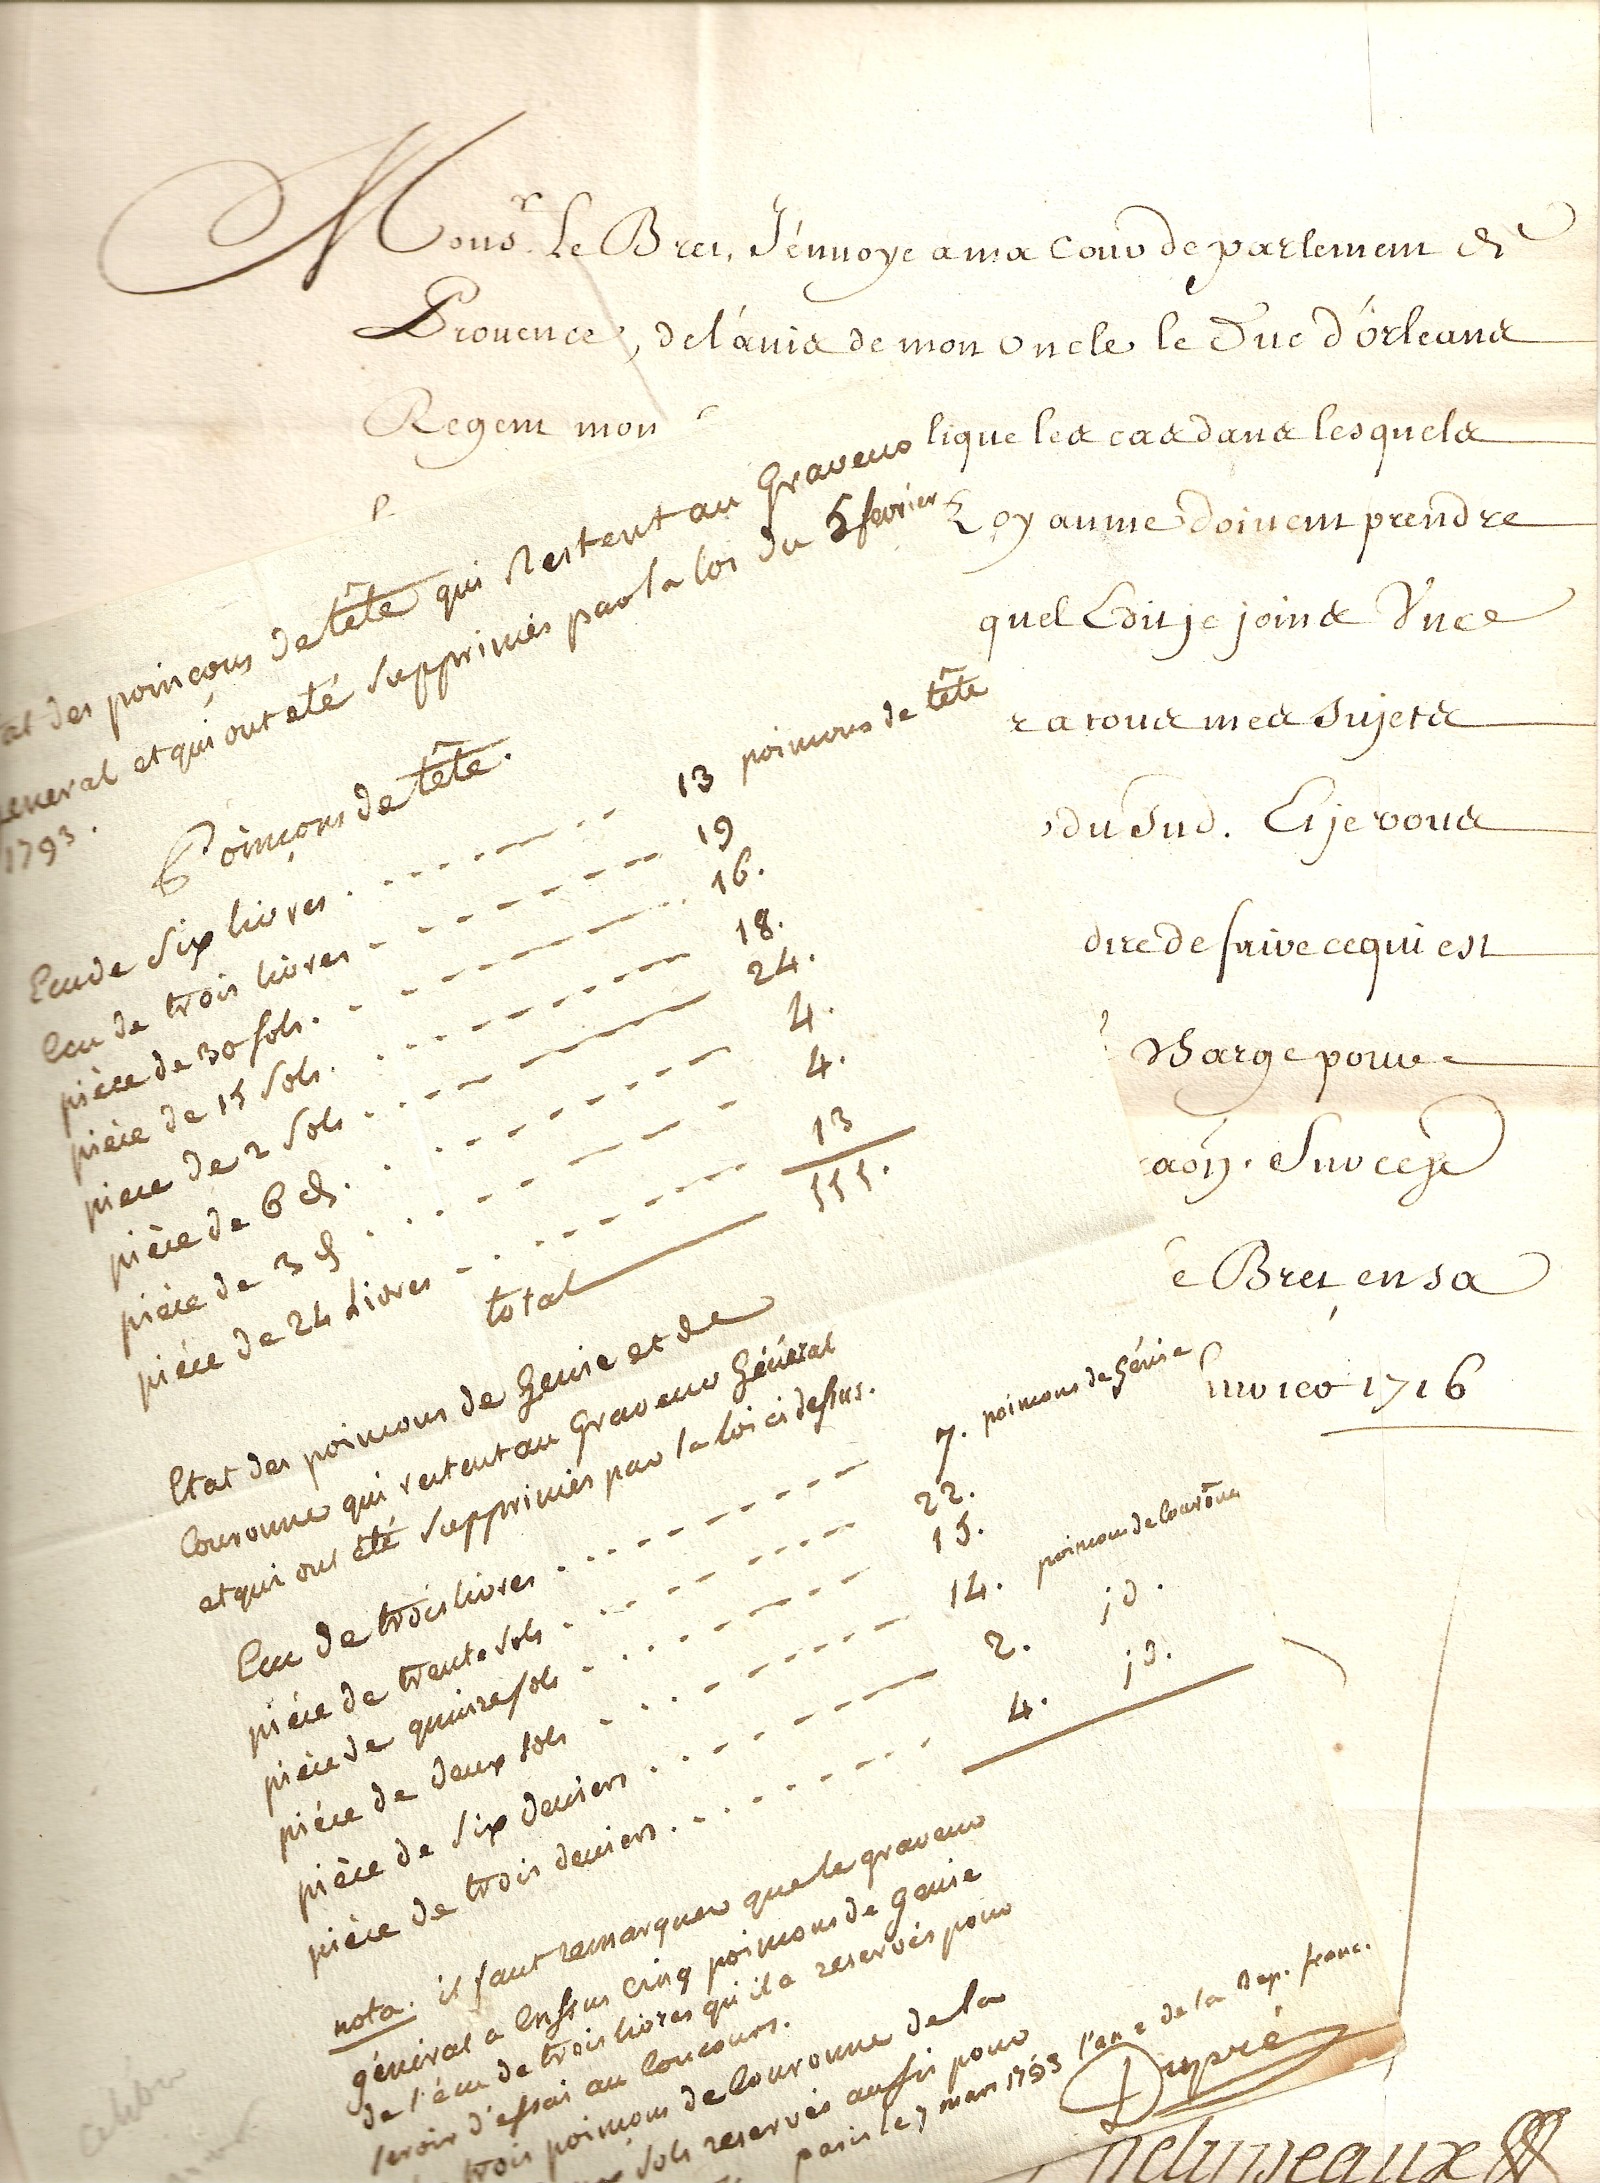 Mons.r Le Bret, J'énuoye a ma Cour de parlement de
Prouence, de l'áuis de mon Oncle le Duc d'Orleans
Regent mon
lique les cas dans lesquels
Royaume doiuent prendre
quel Edit je joins
r a tous mes Sujets
du Sud. Et je vous
dire de faire ce qui est
charge pour
aōn. Sur ce je
e Bret en sa
1716
at des poinçons de tête qui Restent au Graveur
géneral et qui ont eté supprimés par la loi du 5 fevrier
1793.
Poinçons de tête.
Ecu de six livres 13 poincons de tête
Ecu de trois livres 19
pièce de 30 sols. 16.
pièce de 15 sols. 18.
piece de 2 sols 24.
pièce de 6 d. 4.
pièce de 3 d 4.
piéce de 24 Livres 13
total 111.
Etat des poincons de Genie et de
Couronne qui restent au Graveur Géneral
et qui ont été supprimés par la loi ci dessus.
Ecu de trois livres 7. poincons de Génie
piéce de trente sols 22.
piéce de quinze sols 15.
piéce de deux sols 14. poincons de Couronne
pièce de six deniers 2. id.
pièce de trois deniers. 4. id.
nota. il faut remarquer que le graveur
géneral a Enssus cinq poincons de Genie
de l'écu de trois livres qu'il a reservés pour
servir d'essai au Concours.
trois poincons de Couronne de la
sols reservés aussi pour
paris le 7 mars 1793 l'an 2 de la Rep. franc.
Dupré